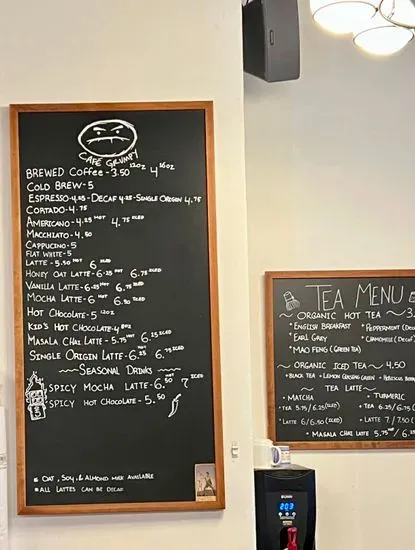 CAFÉ GRUMPY
BREWED COFFEE - 3.50 12oz 4 16oz
COLD BREW - 5
ESPRESSO - 4.25 - DECAF 4.25 - SINGLE ORIGIN 4.75
CORTADO - 4.75
AMERICANO - 4.25 HOT 4.75 ICED
MACCHIATO - 4.50
CAPPUCINO - 5
FLAT WHITE - 5
LATTE - 5.50 HOT 6 ICED
HONEY OAT LATTE - 6.25 HOT 6.75 ICED
VANILLA LATTE - 6.25 HOT 6.75 ICED
MOCHA LATTE - 6 HOT 6.50 ICED
HOT CHOCOLATE - 5 12oz
KID'S HOT CHOCOLATE - 4 8oz
MASALA CHAI LATTE - 5.75 HOT 6.25 ICED
SINGLE ORIGIN LATTE - 6.25 HOT 6.75 ICED
SEASONAL DRINKS
SPICY MOCHA LATTE - 6.50 HOT 7 ICED
SPICY HOT CHOCOLATE - 5.50
* OAT, SOY, & ALMOND MILK AVAILABLE
* ALL LATTES CAN BE DECAF
TEA MENU
ORGANIC HOT TEA
* ENGLISH BREAKFAST * PEPPERMINT
* EARL GREY * CHAMOMILE
* MAO FENG (GREEN TEA)
ORGANIC ICED TEA 4.50
* BLACK TEA * LEMON GINSENG GREEN * HIBISCUS
TEA LATTE
* MATCHA * TURMERIC
* TEA 5.75/6.25 (ICED) * TEA 6.25/6.75
* LATTE 6/6.50 (ICED) LATTE 7/7.50
* MASALA CHAI LATTE 5.75 HOT/6
BUNN
203